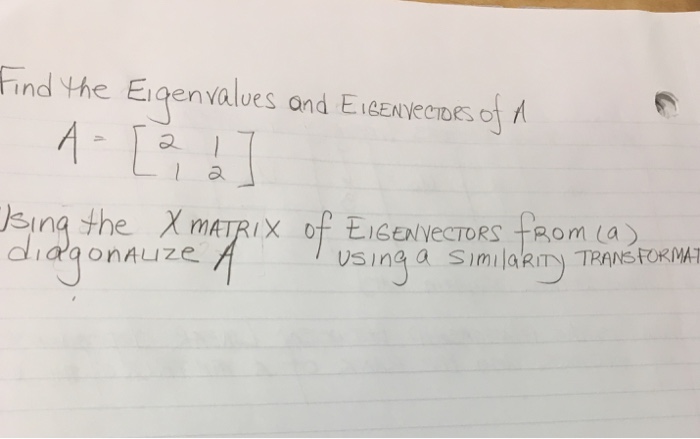 Find the Eigenvalues and EIGENVECTORS of A
A = [2 1
1 2]
Using the X MATRIX of EIGENVECTORS FROM (a)
diagonalize A using a SIMILARITY TRANSFORMAT